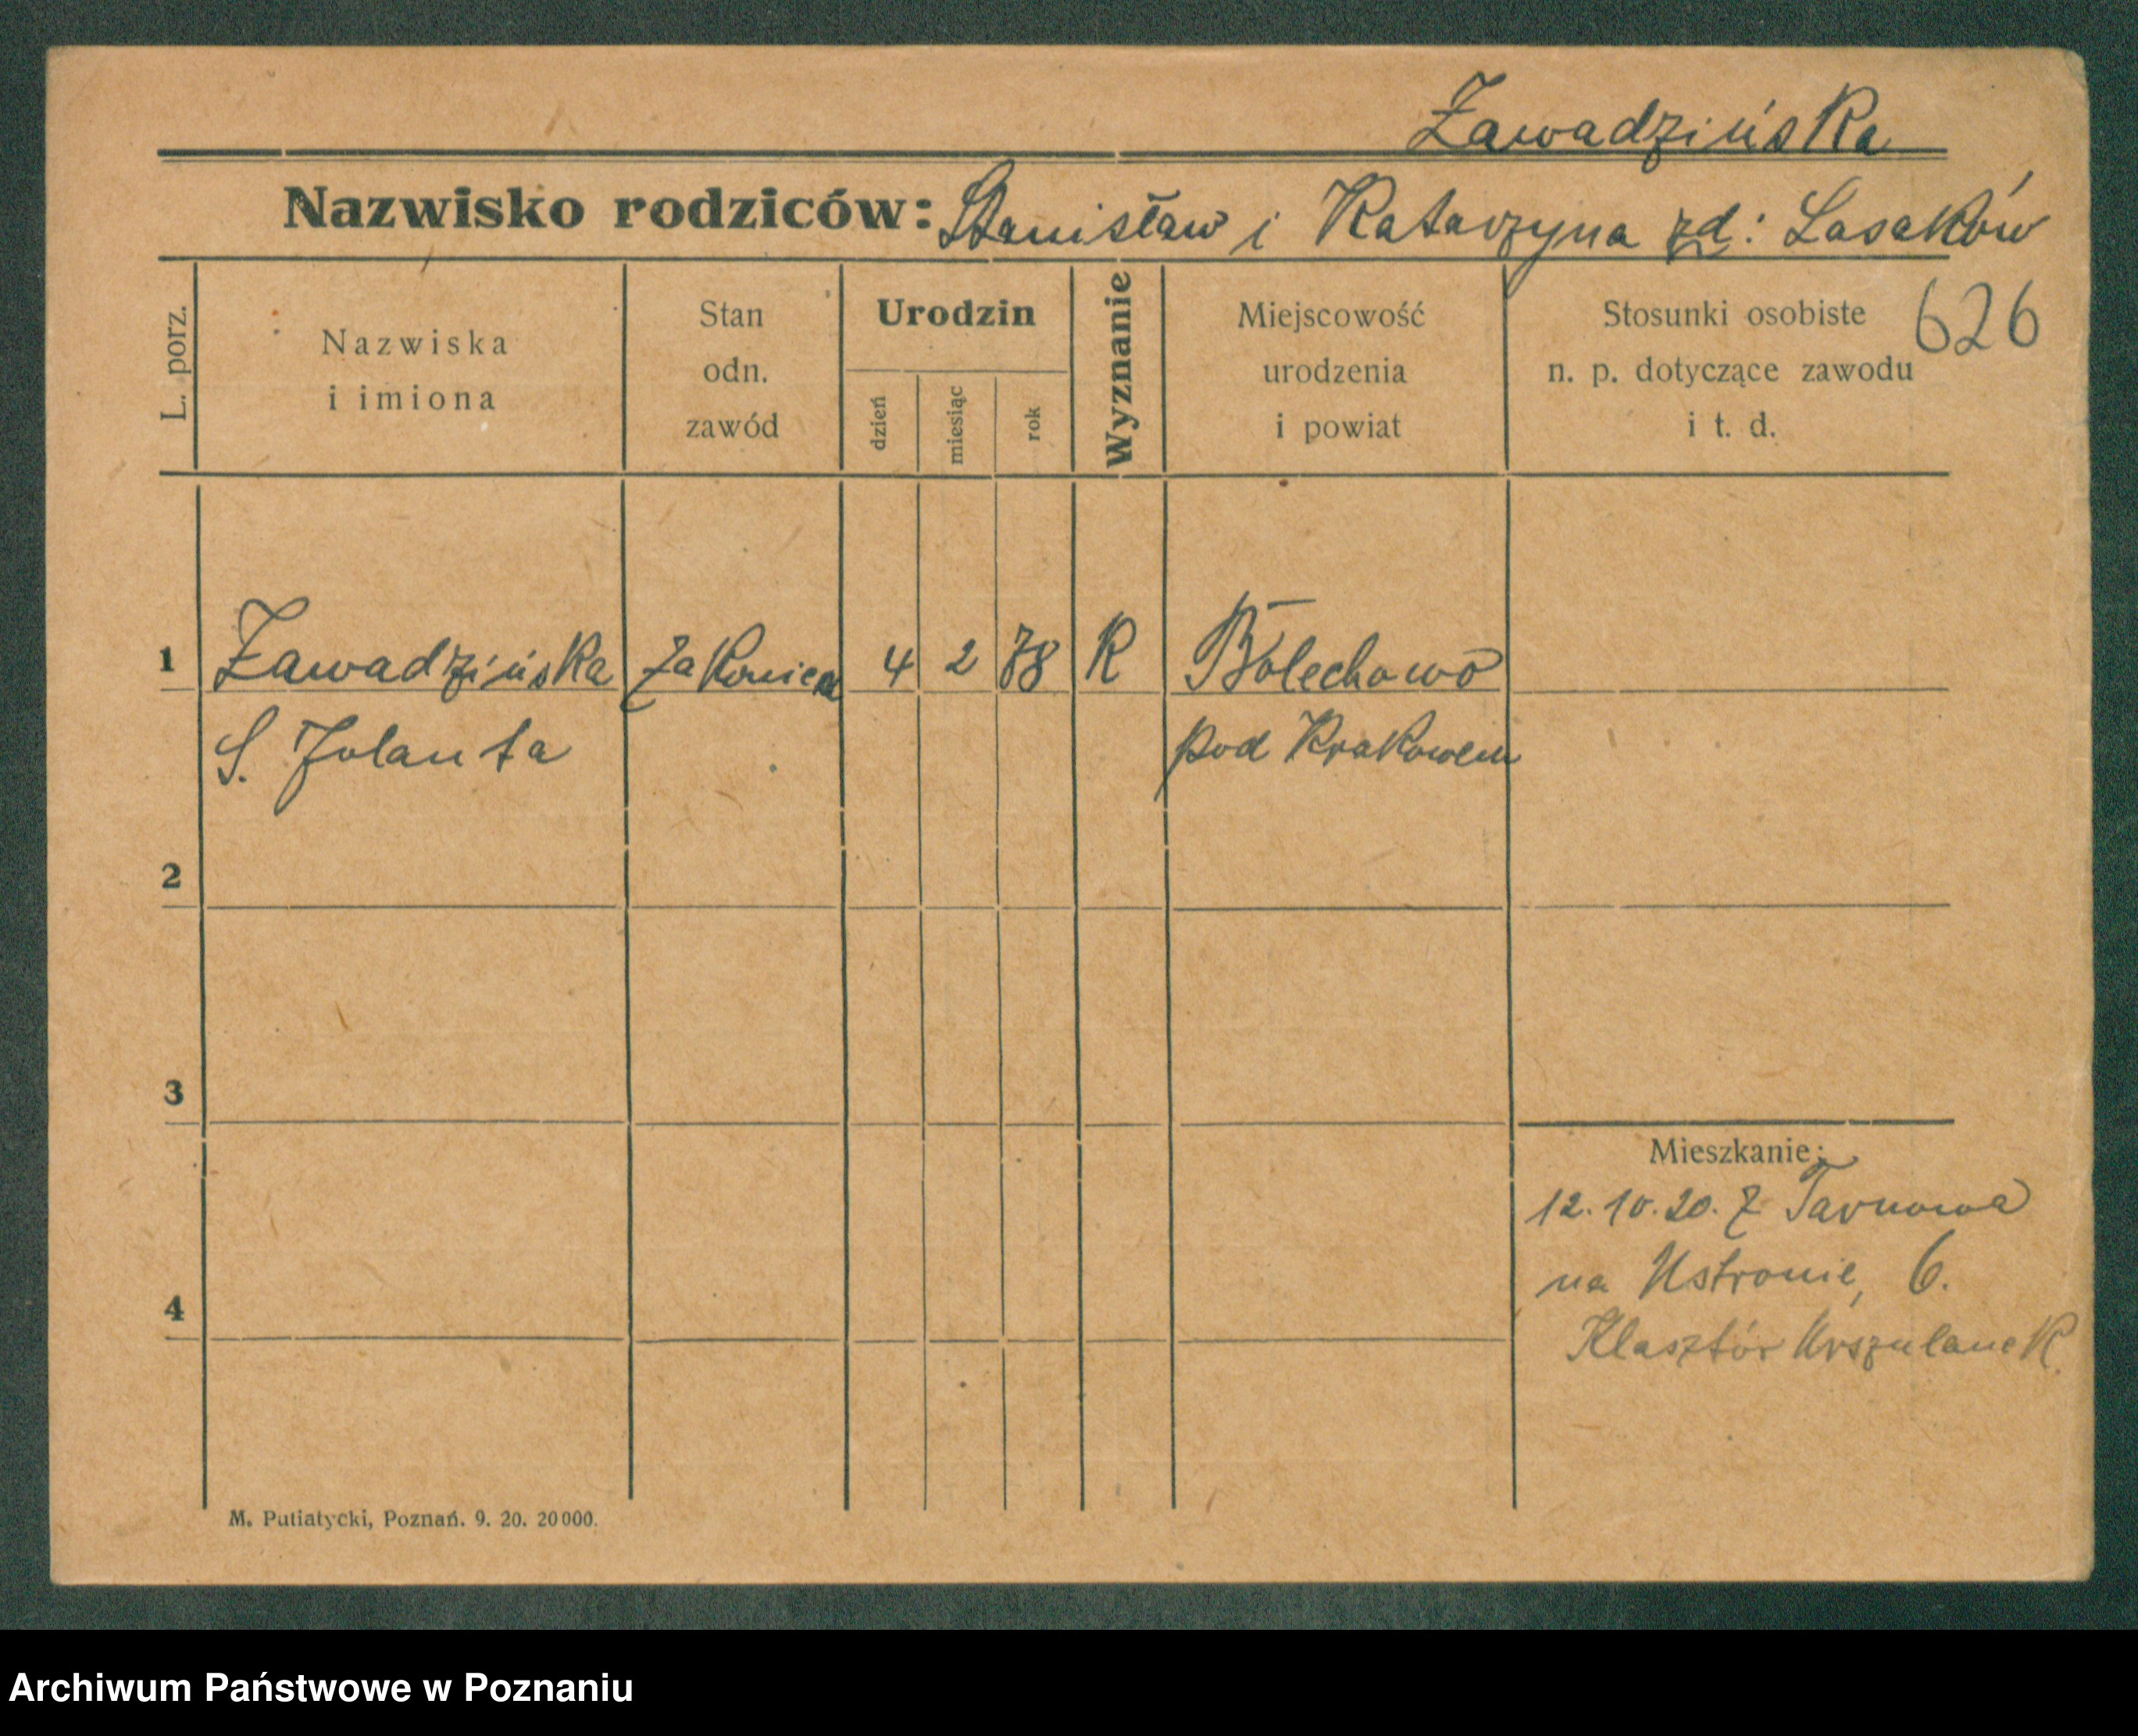 Zawadzińska
Nazwisko rodziców: Stanisław i Katarzyna zd: Lasaków
626
L. porz.
Nazwiska
i imiona
Stan
odn.
zawód
Urodzin
dzień
miesiąc
rok
Wyznanie
Miejscowość
urodzenia
i powiat
Stosunki osobiste
n. p. dotyczące zawodu
i t. d.
1 Zawadzińska zakonica 4 2 78 R Bolechowo
S. Jolanta pod Krakowem
2
3
Mieszkanie:
12.10.20. z Tarnowa
na Ustronie, 6.
4
Klasztór Urszulanek.
M. Putiatycki, Poznań. 9. 20. 20000.
Archiwum Państwowe w Poznaniu